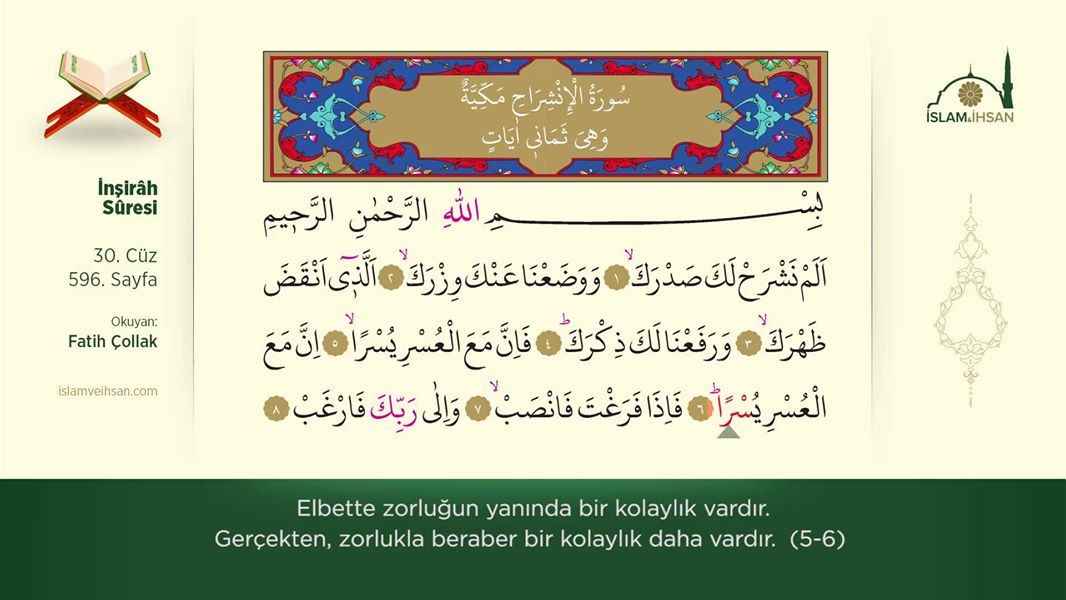 İnşirâh
Sûresi
30. Cüz
596. Sayfa
Okuyan:
Fatih Çollak
islamveihsan.com
سُورَةُ الْاِنْشِرَاحِ مَكِّيَّةٌ
وَهِيَ ثَمَانِي اٰيَاتٍ
بِسْمِ اللّٰهِ الرَّحْمٰنِ الرَّحٖيمِ
اَلَمْ نَشْرَحْ لَكَ صَدْرَكَۙ ١ وَوَضَعْنَا عَنْكَ وِزْرَكَۙ ٢ اَلَّذٖٓى اَنْقَضَ
ظَهْرَكَۙ ٣ وَرَفَعْنَا لَكَ ذِكْرَكَؕ ٤ فَاِنَّ مَعَ الْعُسْرِ يُسْرًاۙ ٥ اِنَّ مَعَ
الْعُسْرِ يُسْرًاؕ ٦ فَاِذَا فَرَغْتَ فَانْصَبْۙ ٧ وَاِلٰى رَبِّكَ فَارْغَبْ ٨
İSLAM&İHSAN
Elbette zorluğun yanında bir kolaylık vardır.
Gerçekten, zorlukla beraber bir kolaylık daha vardır. (5-6)